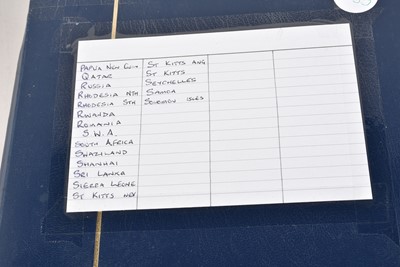 PAPUA NEW GUIN
QATAR
RUSSIA
RHODESIA NTH
RHODESIA STH
RWANDA
ROMANIA
S.W.A.
SOUTH AFRICA
SWAZILAND
SHANHAI
SRI LANKA
SIERRA LEONE
ST KITTS NEV
ST KITTS ANG
ST KITTS
SEYCHELLES
SAMOA
SOLOMON ISLES